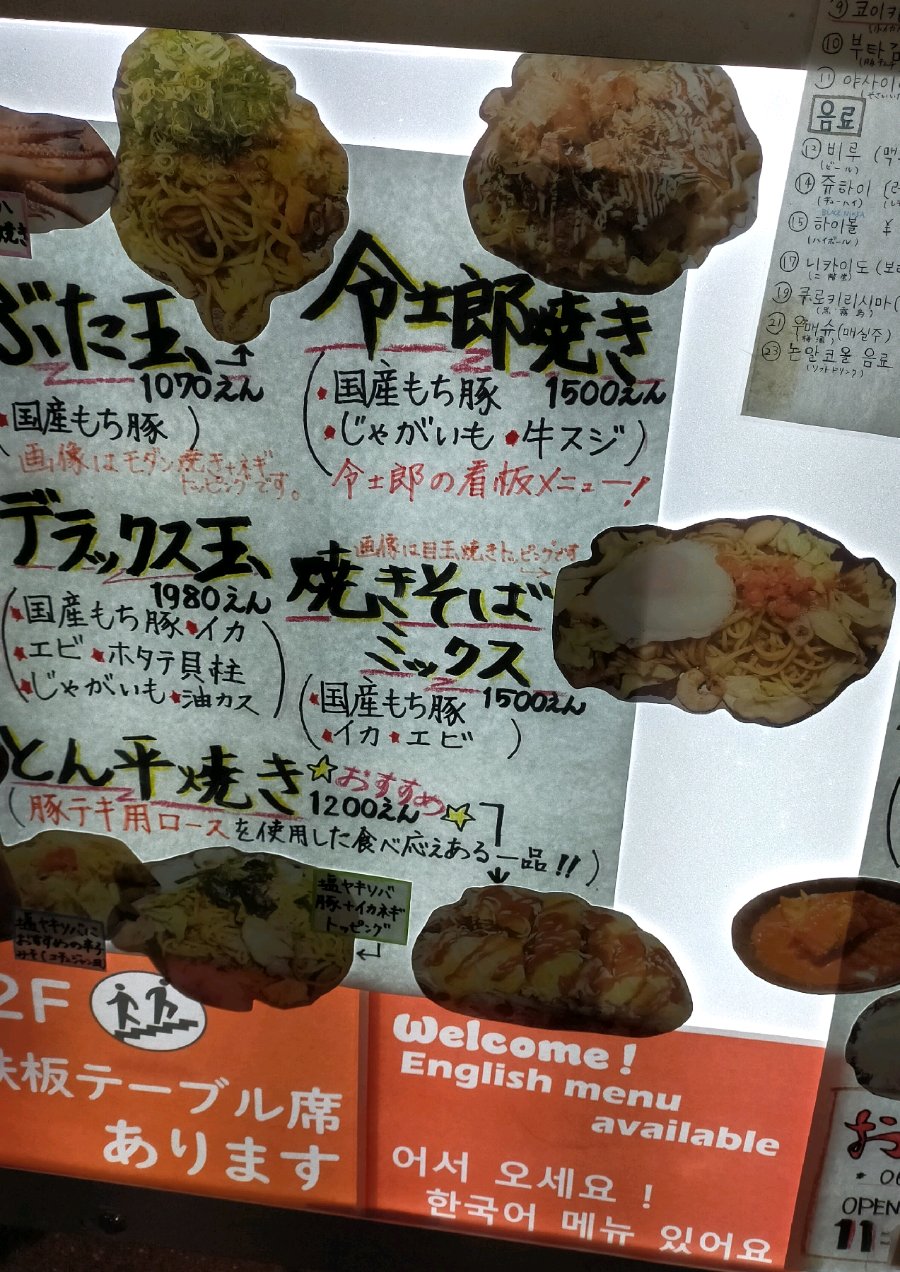 ぶた玉、
1070えん
・国産もち豚)
画像はモダン焼き+ネギ
トッピングです。
令士郎焼き
1500えん
(・国産もち豚
・じゃがいも ・牛スジ)
令士郎の看板メニュー!
デラックス玉、
1980えん
(・国産もち豚・イカ
・エビ・ホタテ貝柱
・じゃがいも・油カス)
画像は目玉焼きトッピングです
焼きそば
ミックス
1500えん
(・国産もち豚
・イカ・エビ )
とん平焼き ☆おすすめ☆
1200えん
(豚テキ用ロースを使用した食べ応えある一品!!)
塩ヤキソバに
おすすめの辛子
塩ヤキソバ
豚+イカネギ
トッピング
2F
鉄板テーブル席
あります
Welcome!
English menu
available
어서 오세요 !
한국어 메뉴 있어요
⑨ 코이카
⑩ 부타김
⑪ 야사이
음료
⑬ 비루 (맥
(ビール)
⑭ 쥬하이 (
(チューハイ)
BLACK NIKKA
⑮ 하이볼 ¥
(ハイボール)
⑰ 니카이도 (보
(二階堂)
⑲ 쿠로키리시마 (
(黒霧島)
㉑ 우메슈 (매실주)
(梅酒)
㉓ 논알코올 음료
(ソフトドリンク)
OPEN
11: